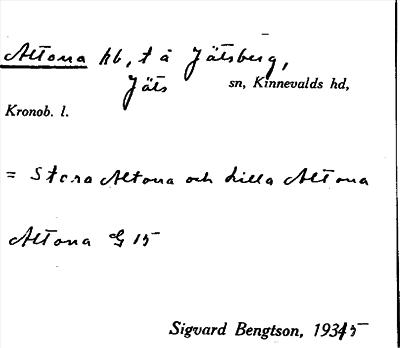 Altona hb, t å Jätsberg,
Jäts sn, Kinnevalds hd,
Kronob. l.
= Stora Altona och Lilla Altona
Altona G 15
Sigvard Bengtson, 1935